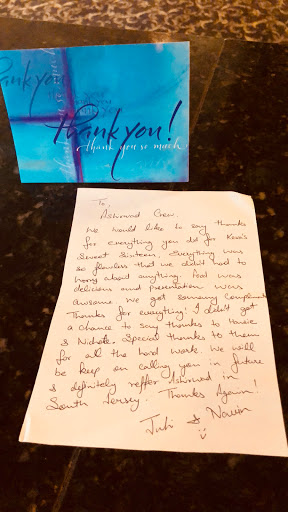 thank you
thank you!
thank you so much
To,
Ashirwad Crew,
We would like to say thanks
for everything you did for
Sweet Sixteen. Everything was
so flawless that we didn't had to
worry about anything. Food was
delicious and presentation was
awsome we got somany
Thanks for everything! I didn't get
a chance to say thanks to
& Nichole. Special thanks to them
for all the hard work. We will
be keep on calling you in future
& definitely reffer Ashirwad in
South Jersey. Thanks Again!
&